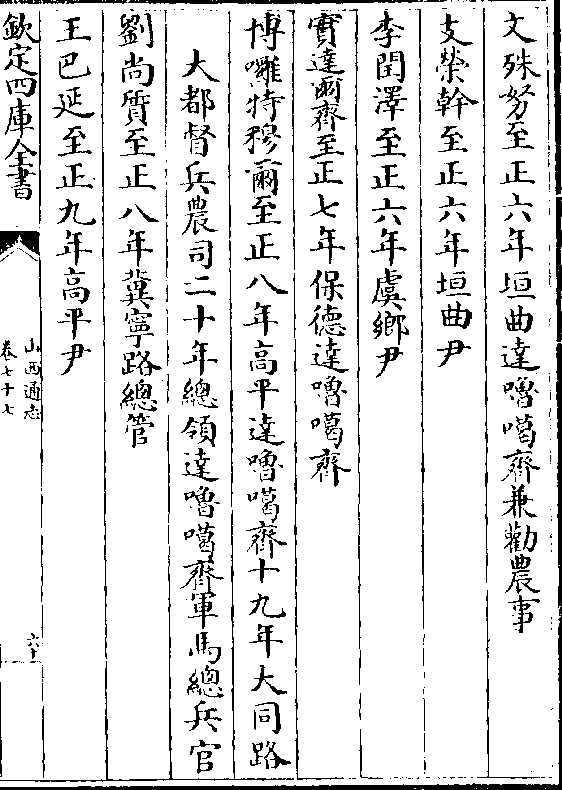 文殊努至正六年垣曲達嚕噶齊兼勸農事
支榮幹至正六年垣曲尹
李閏澤至正六年虞鄉尹
實達爾齊至正七年保德達嚕噶齊
博囉特穆爾至正八年高平達嚕噶齊十九年大同路
大都督兵農司二十年總領達嚕噶齊軍馬總兵官
劉尚質至正八年冀寧路總管
王巴延至正九年高平尹
欽定四庫全書
山西通志
卷七十七
六十